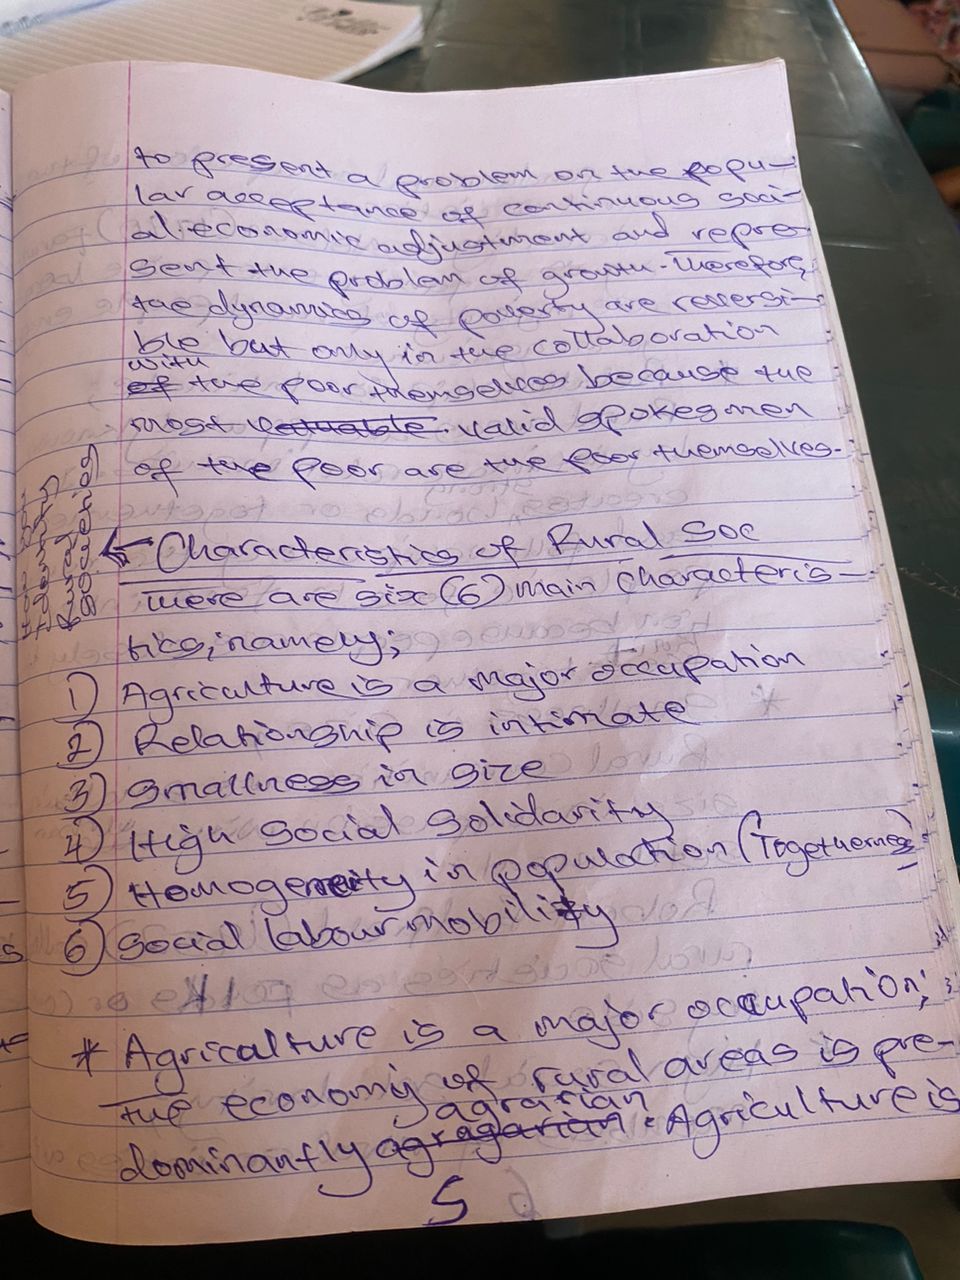 to present a problem on the popu-
lar acceptance of continuous soci-
al-economic adjustment and repre-
sent the problem of growth. Therefore,
the dynamics of poverty are reversi-
ble but only in the collaboration
with
of the poor themselves because the
most valuable valid spokesmen
of the poor are the poor themselves.
Rural
Societies
← Characteristics of Rural Soc
There are six (6) main characteris-
tics, namely;
1) Agriculture is a major occupation
2) Relationship is intimate
3) Smallness in size
4) High Social Solidarity
5) Homogeneity in population (Togetherness)
6) Social labour mobility
* Agriculture is a major occupation;
the economy of rural areas is pre-
agrarian
dominantly agragarian. Agriculture is
5